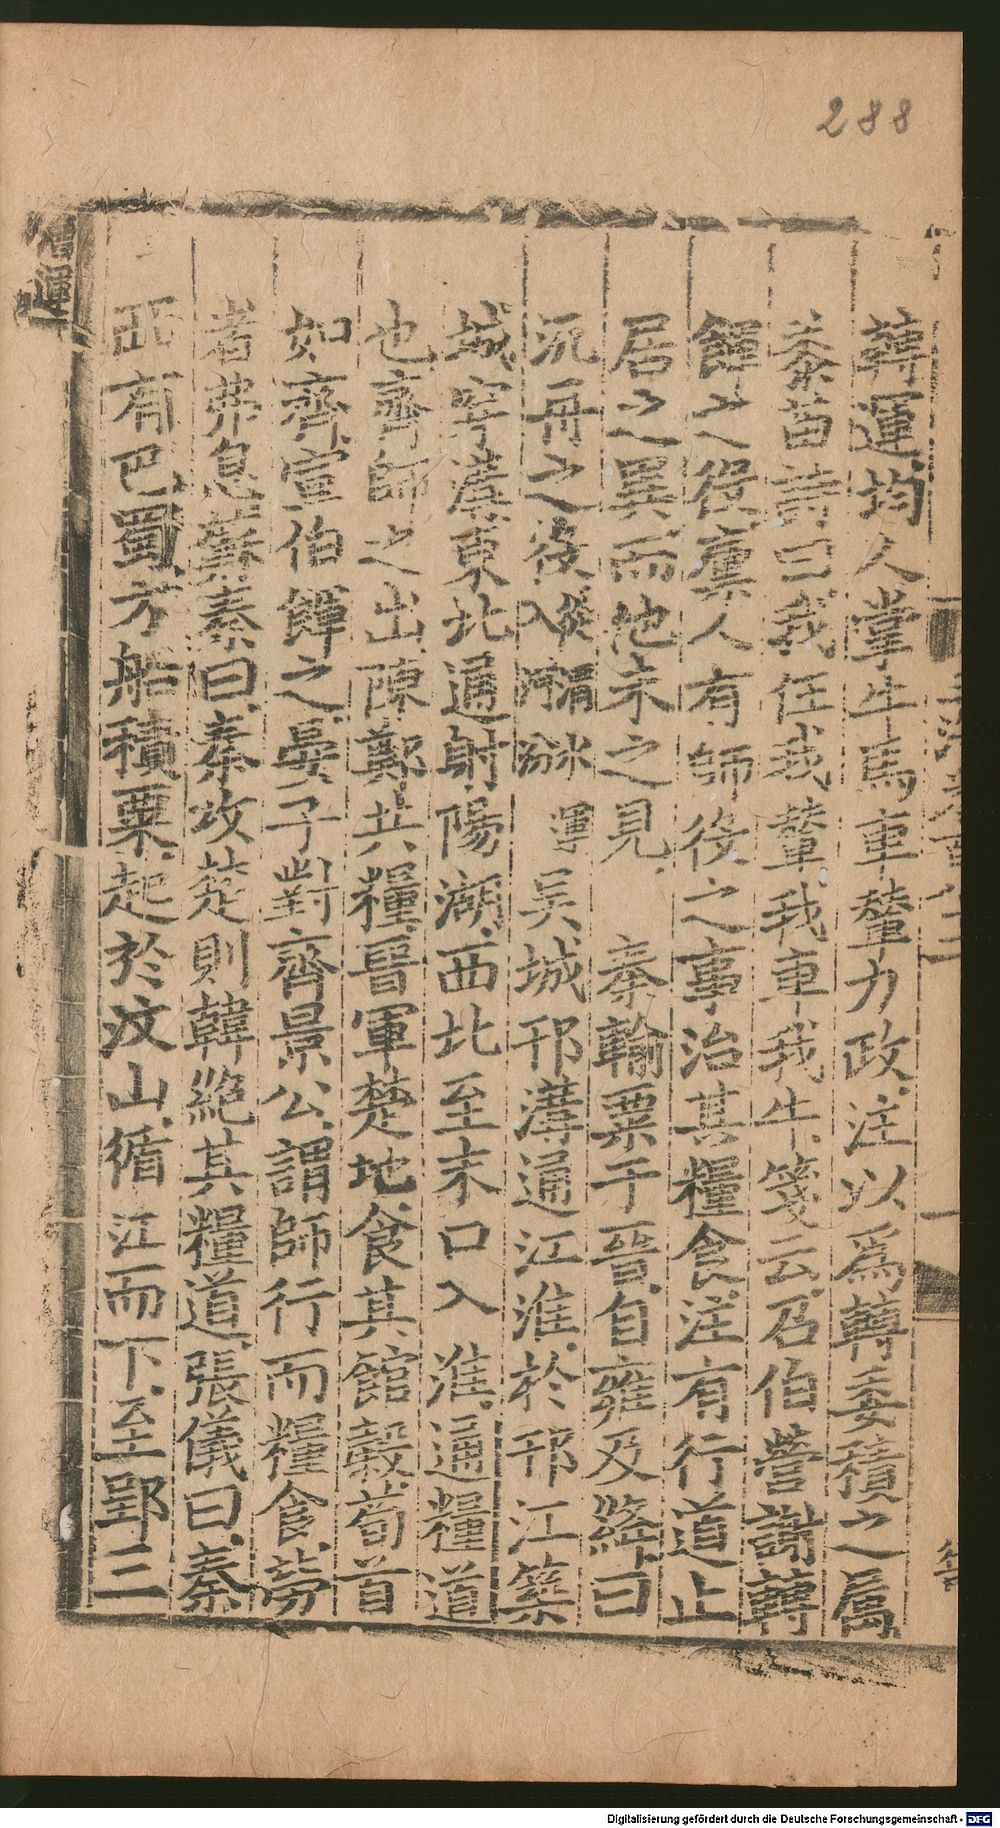 288
𫏋運均人掌牛馬車輦力政注以爲轉委積之屬
黍苗詩曰我任我輦我車我牛箋云召伯營謝轉
餫之役稟人有師役之事治其糧食注有行道止
居之異而他未之見 秦輸粟于晉自雍及絳曰
汎舟之役從渭水運入河汾 吳城邗溝通江淮於邗江築
城穿溝東北通射陽湖西北至末口入淮通糧道
也齊師之出陳鄭共糧晉軍楚地食其館穀荀首
如齊宣伯餫之晏子對齊景公謂師行而糧食勞
者弗息蘇秦曰秦攻楚則韓絕其糧道張儀曰秦
西有巴蜀方船積粟起於汶山循江而下至郢三
漕運
Digitalisierung gefördert durch die Deutsche Forschungsgemeinschaft - DFG